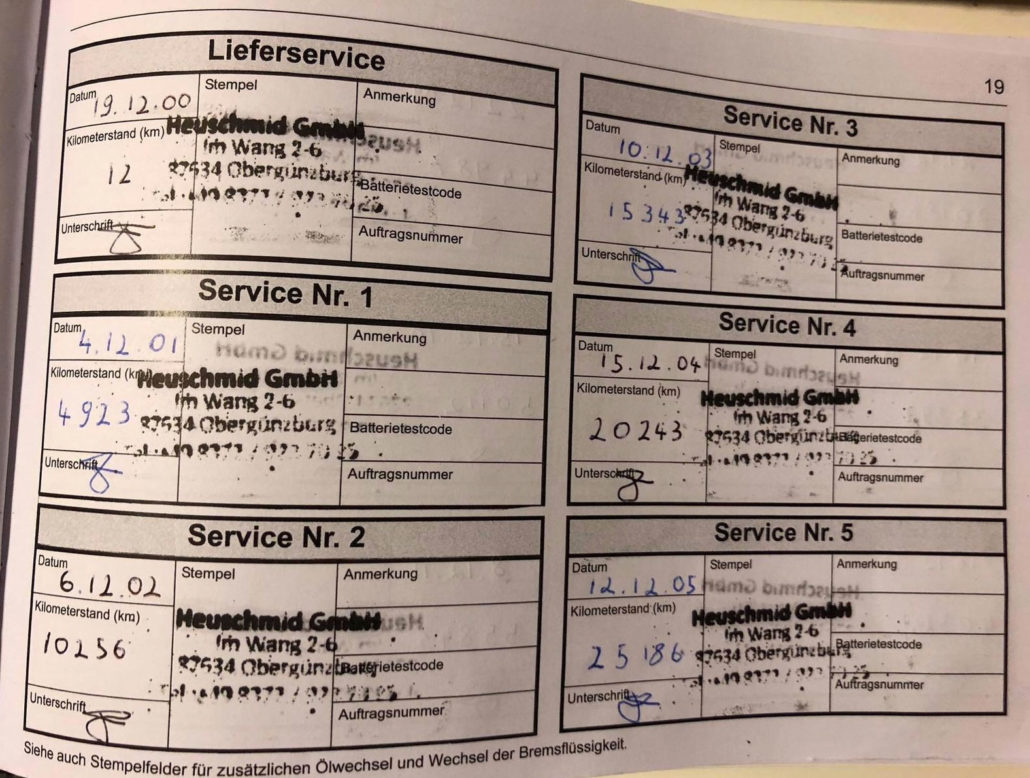 19
Lieferservice
Datum 19.12.00
Stempel
Anmerkung
Kilometerstand (km)
12
Heuschmid GmbH
Im Wang 2-6
87634 Obergünzburg
Batterietestcode
Unterschrift
Auftragsnummer
Service Nr. 1
Datum 4.12.01
Stempel
Anmerkung
Kilometerstand (km)
4923
Heuschmid GmbH
Im Wang 2-6
87634 Obergünzburg
Batterietestcode
Unterschrift
Auftragsnummer
Service Nr. 2
Datum 6.12.02
Stempel
Anmerkung
Kilometerstand (km)
10256
Heuschmid GmbH
Im Wang 2-6
87634 Obergünzburg
Batterietestcode
Unterschrift
Auftragsnummer
Service Nr. 3
Datum 10.12.03
Stempel
Anmerkung
Kilometerstand (km)
15343
Heuschmid GmbH
Im Wang 2-6
87634 Obergünzburg
Batterietestcode
Unterschrift
Auftragsnummer
Service Nr. 4
Datum 15.12.04
Stempel
Anmerkung
Kilometerstand (km)
20243
Heuschmid GmbH
Im Wang 2-6
87634 Obergünzburg
Batterietestcode
Unterschrift
Auftragsnummer
Service Nr. 5
Datum 12.12.05
Stempel
Anmerkung
Kilometerstand (km)
25186
Heuschmid GmbH
Im Wang 2-6
87634 Obergünzburg
Batterietestcode
Unterschrift
Auftragsnummer
Siehe auch Stempelfelder für zusätzlichen Ölwechsel und Wechsel der Bremsflüssigkeit.